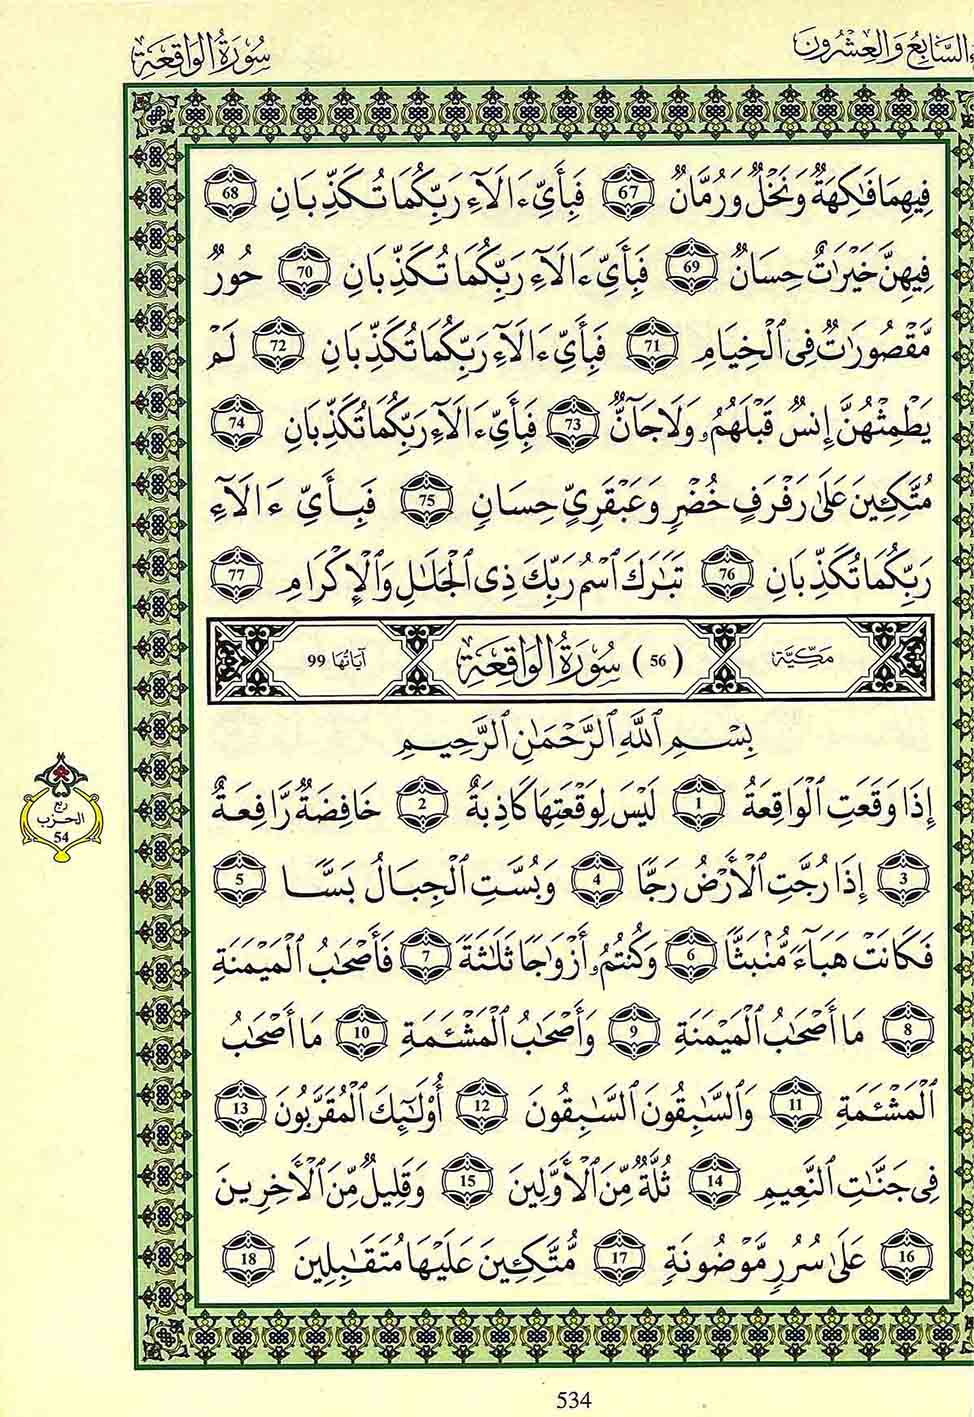 السَّابِعُ وَالْعِشْرُونَ
سُورَةُ الْوَاقِعَةِ
فِيهِمَا فَٰكِهَةٌ وَنَخْلٌ وَرُمَّانٌ 67 فَبِأَيِّ ءَالَآءِ رَبِّكُمَا تُكَذِّبَانِ 68
فِيهِنَّ خَيْرَٰتٌ حِسَانٌ 69 فَبِأَيِّ ءَالَآءِ رَبِّكُمَا تُكَذِّبَانِ 70 حُورٌ
مَّقْصُورَٰتٌ فِى ٱلْخِيَامِ 71 فَبِأَيِّ ءَالَآءِ رَبِّكُمَا تُكَذِّبَانِ 72 لَمْ
يَطْمِثْهُنَّ إِنسٌ قَبْلَهُمُۥ وَلَا جَآنٌّ 73 فَبِأَيِّ ءَالَآءِ رَبِّكُمَا تُكَذِّبَانِ 74
مُتَّكِـِٔينَ عَلَىٰ رَفْرَفٍ خُضْرٍ وَعَبْقَرِىٍّ حِسَانٍ 75 فَبِأَيِّ ءَالَآءِ
رَبِّكُمَا تُكَذِّبَانِ 76 تَبَٰرَكَ ٱسْمُ رَبِّكَ ذِى ٱلْجَلَٰلِ وَٱلْإِكْرَامِ 77
مَكِّيَّة (56) سُورَةُ الْوَاقِعَةِ آيَاتُهَا 99
بِسْمِ ٱللَّهِ ٱلرَّحْمَٰنِ ٱلرَّحِيمِ
إِذَا وَقَعَتِ ٱلْوَاقِعَةُ 1 لَيْسَ لِوَقْعَتِهَا كَاذِبَةٌ 2 خَافِضَةٌ رَّافِعَةٌ
3 إِذَا رُجَّتِ ٱلْأَرْضُ رَجًّا 4 وَبُسَّتِ ٱلْجِبَالُ بَسًّا 5
فَكَانَتْ هَبَآءً مُّنۢبَثًّا 6 وَكُنتُمُۥ أَزْوَٰجًا ثَلَٰثَةً 7 فَأَصْحَٰبُ ٱلْمَيْمَنَةِ
8 مَا أَصْحَٰبُ ٱلْمَيْمَنَةِ 9 وَأَصْحَٰبُ ٱلْمَشْـَٔمَةِ 10 مَا أَصْحَٰبُ
ٱلْمَشْـَٔمَةِ 11 وَٱلسَّٰبِقُونَ ٱلسَّٰبِقُونَ 12 أُوْلَٰٓئِكَ ٱلْمُقَرَّبُونَ 13
فِى جَنَّٰتِ ٱلنَّعِيمِ 14 ثُلَّةٌ مِّنَ ٱلْأَوَّلِينَ 15 وَقَلِيلٌ مِّنَ ٱلْأَخِرِينَ
16 عَلَىٰ سُرُرٍ مَّوْضُونَةٍ 17 مُّتَّكِـِٔينَ عَلَيْهَا مُتَقَٰبِلِينَ 18
ربع
الحزب
54
534